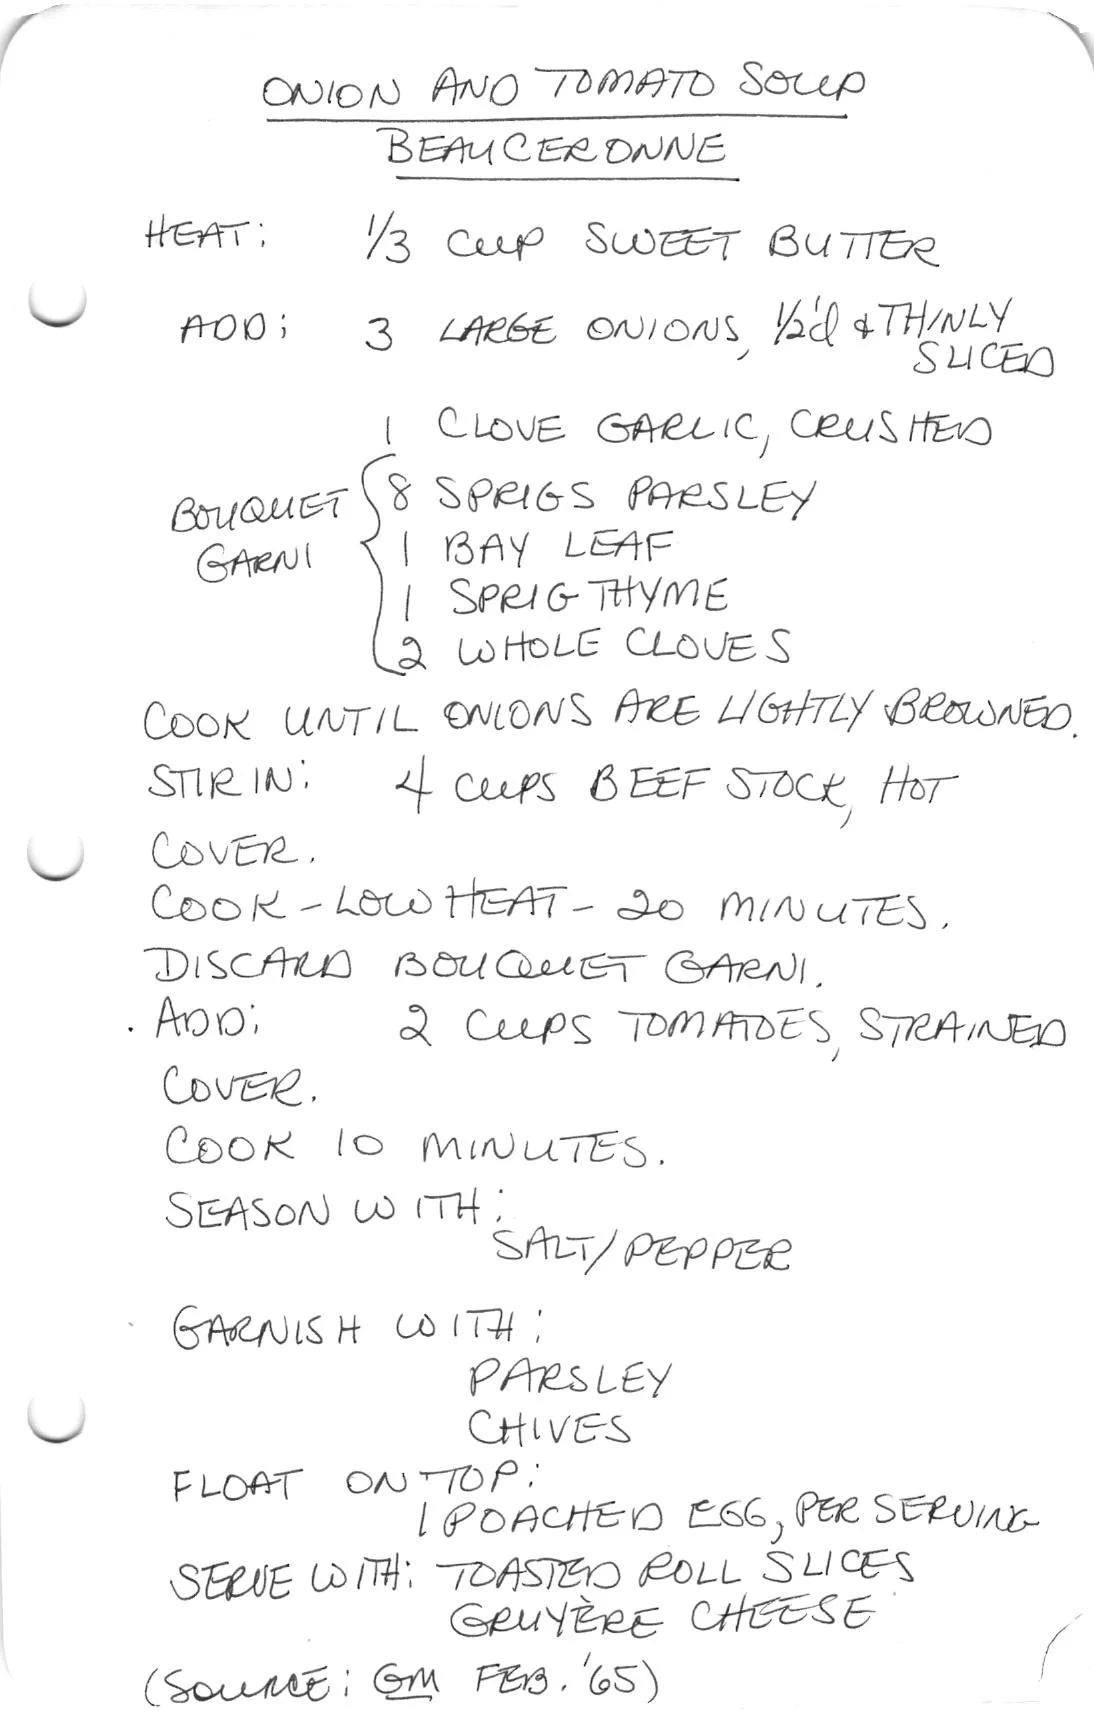 ONION AND TOMATO SOUP
BEAUCERONNE
HEAT: 1/3 CUP SWEET BUTTER
ADD: 3 LARGE ONIONS, 1/2'd & THINLY
SLICED
1 CLOVE GARLIC, CRUSHED
BOUQUET GARNI { 8 SPRIGS PARSLEY
1 BAY LEAF
1 SPRIG THYME
2 WHOLE CLOVES
COOK UNTIL ONIONS ARE LIGHTLY BROWNED.
STIR IN: 4 CUPS BEEF STOCK, HOT
COVER.
COOK - LOW HEAT - 20 MINUTES.
DISCARD BOUQUET GARNI.
. ADD: 2 CUPS TOMATOES, STRAINED
COVER.
COOK 10 MINUTES.
SEASON WITH:
SALT/PEPPER
GARNISH WITH:
PARSLEY
CHIVES
FLOAT ON TOP:
1 POACHED EGG, PER SERVING
SERVE WITH: TOASTED ROLL SLICES
GRUYÈRE CHEESE
(SOURCE: GM FEB. '65)